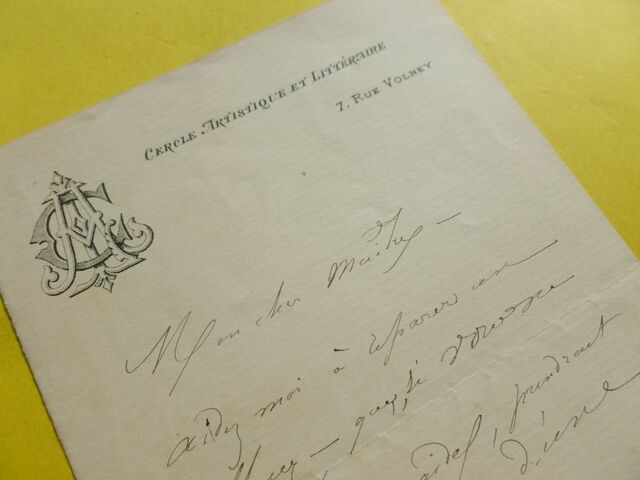 CERCLE ARTISTIQUE ET LITTÉRAIRE
7, RUE VOLNEY
Mon cher Maître –
aidez moi à réparer un
– que, si vous ne
aidez, prendrait